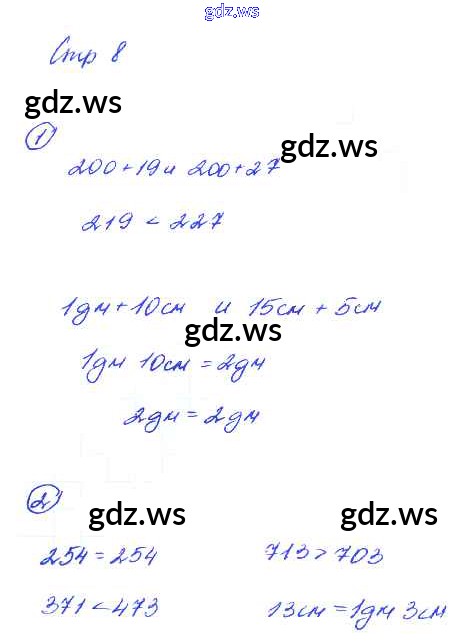 gdz.ws
Стр 8
gdz.ws
1
200+19 и 200+27
gdz.ws
219 < 227
1дм + 10см и 15см + 5см
gdz.ws
1дм 10см = 2дм
2дм = 2дм
2
gdz.ws gdz.ws
254 = 254 713 > 703
371 < 473 13см = 1дм 3см